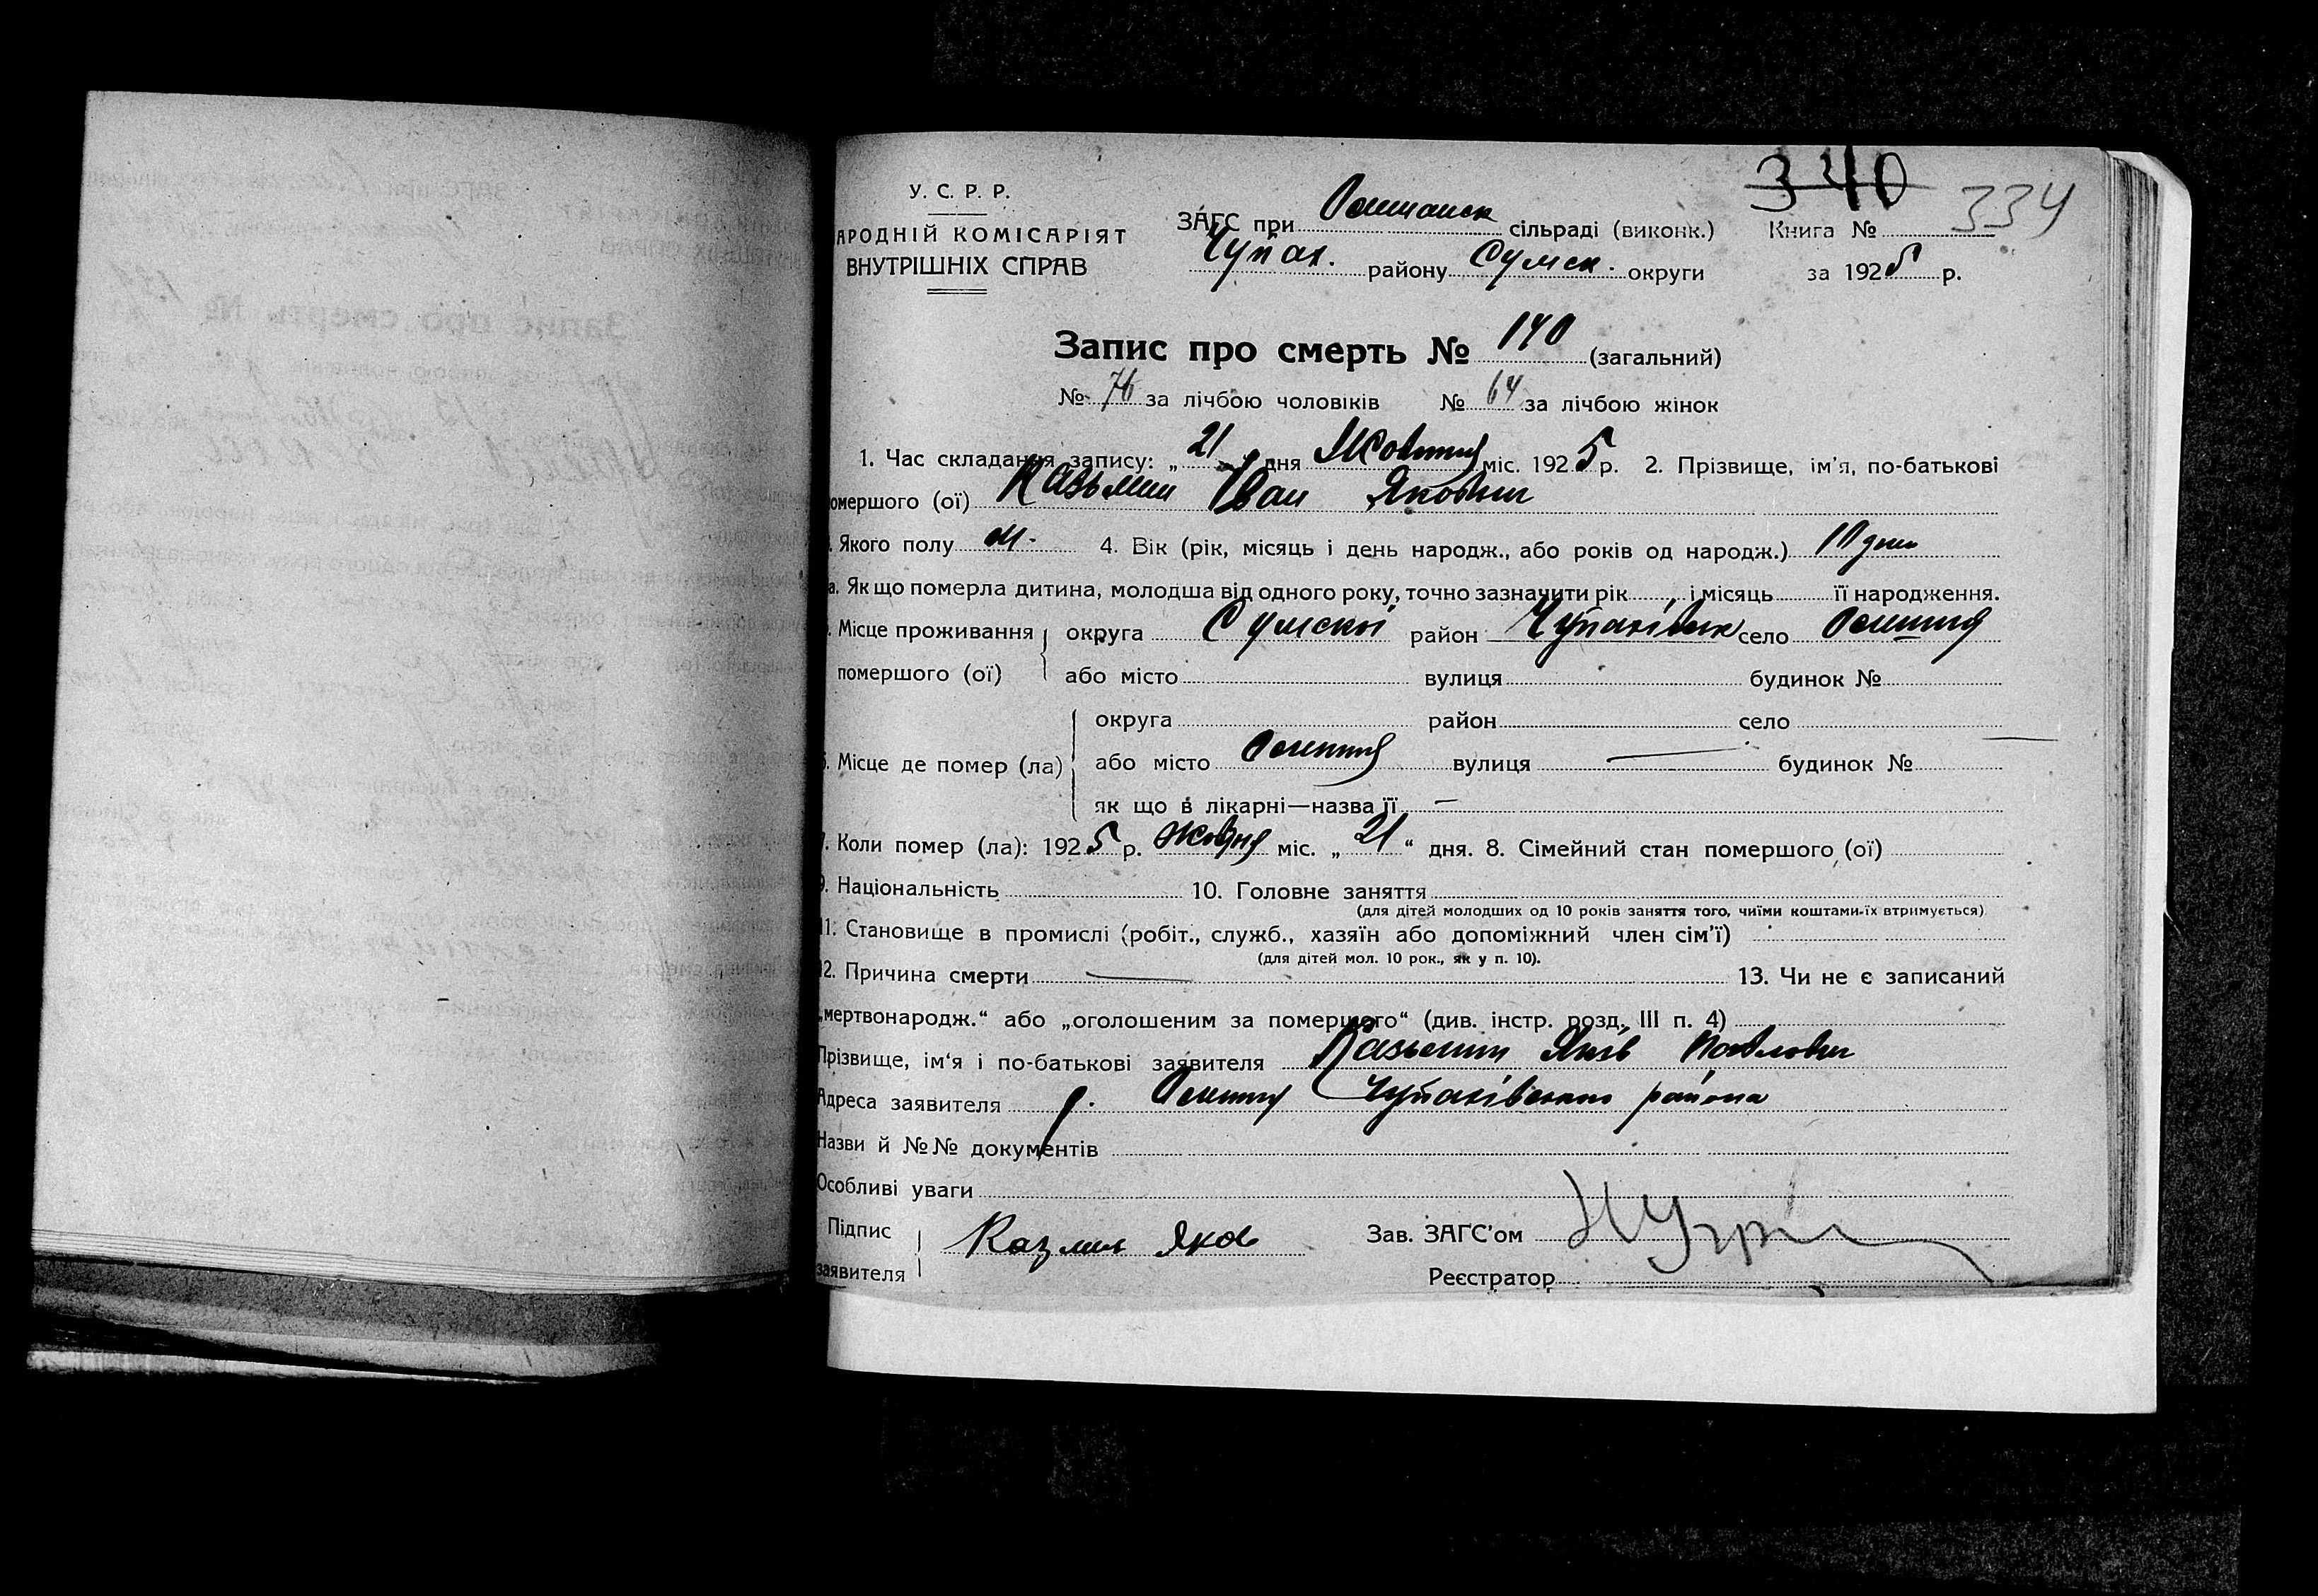 340 334
У. С. Р. Р.
АРОДНІЙ КОМІСАРІЯТ
ВНУТРІШНІХ СПРАВ
ЗАГС при сільраді (виконк.) Книга №
Чупах. району Сумск. округи за 1925 р.
Запис про смерть № 140 (загальний)
№ 76 за лічбою чоловіків № 64 за лічбою жінок
1. Час складання запису: „21" дня Жовтня міс. 1925 р. 2. Прізвище, ім'я, по-батькові
омершого (ої) Казьмин Іван Якович
. Якого полу м. 4. Вік (рік, місяць і день народж., або років од народж.) 10 днів
а. Як що померла дитина, молодша від одного року, точно зазначити рік , і місяць її народження.
. Місце проживання округа Сумскої район Чупахівськ село
помершого (ої) або місто вулиця будинок №
округа район село
. Місце де помер (ла) або місто вулиця — будинок №
як що в лікарні—назва її —
. Коли помер (ла): 1925 р. Жовтня міс. „21“ дня. 8. Сімейний стан помершого (ої)
9. Національність 10. Головне заняття
(для дітей молодших од 10 років заняття того, чиїми коштами їх втримується)
11. Становище в промислі (робіт., служб., хазяїн або допоміжний член сім'ї)
(для дітей мол. 10 рок., як у п. 10).
12. Причина смерти — 13. Чи не є записаний
„мертвонародж.“ або „оголошеним за помершого“ (див. інстр. розд. III п. 4)
Прізвище, ім'я і по-батькові заявителя Казьмин Яків Павлович
Адреса заявителя с. Чупахівського района
Назви й №№ документів
Особливі уваги
Підпис заявителя Казмин Яков Зав. ЗАГС'ом
Реєстратор